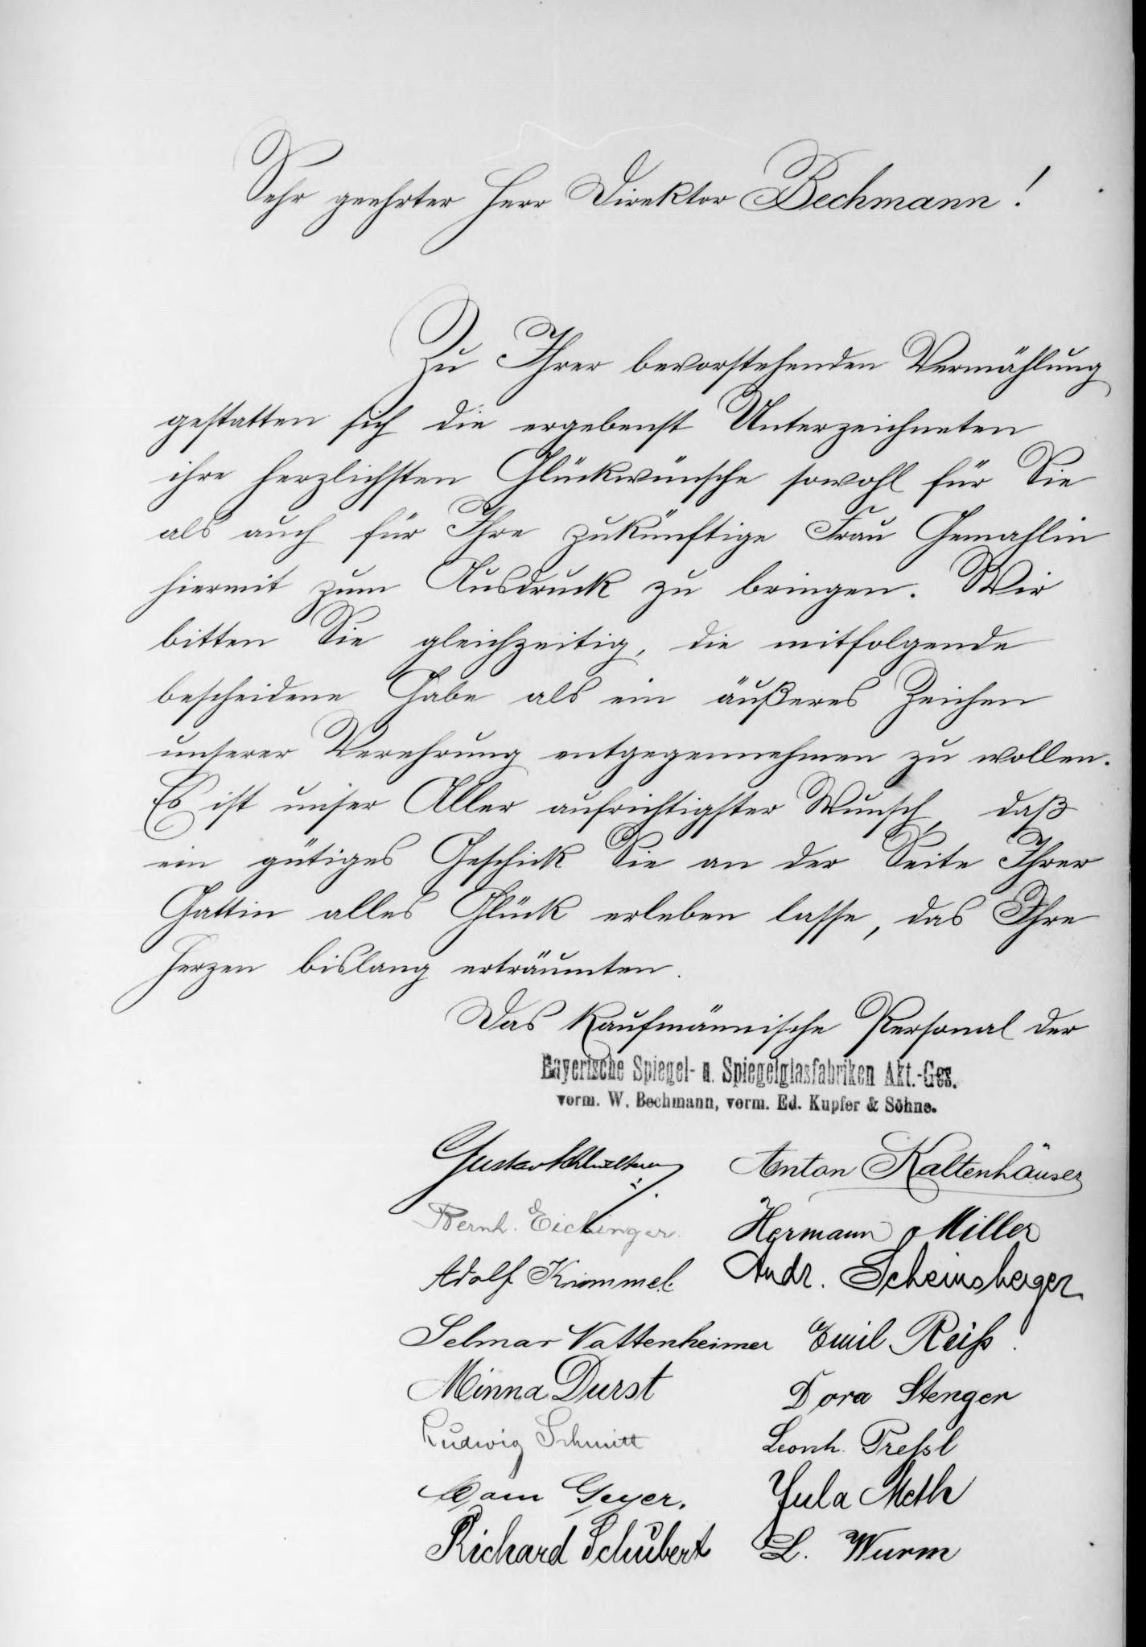 Sehr geehrter Herr Direktor Bechmann!
Zu Ihrer bevorstehenden Vermählung
gestatten sich die ergebenst Unterzeichneten
ihre herzlichsten Glückwünsche sowohl für Sie
als auch für Ihre zukünftige Frau Gemahlin
hiermit zum Ausdruck zu bringen. Wir
bitten Sie gleichzeitig, die mitfolgende
bescheidene Gabe als ein äußeres Zeichen
unserer Verehrung entgegennehmen zu wollen.
Es ist unser Aller aufrichtigster Wunsch, daß
ein gütiges Geschick Sie an der Seite Ihrer
Gattin alles Glück erleben lasse, das Ihre
Herzen bislang erträumten.
Das kaufmännische Personal der
Bayerische Spiegel- u. Spiegelglasfabriken Akt.-Ges.
vorm. W. Bechmann, vorm. Ed. Kupfer & Söhne.
Gustav Anton Kaltenhäuser
Bernh. Eichinger Hermann Miller
Adolf Kimmel Andr. Scheinsberger
Selmar Nattenheimer Emil Reiß.
Minna Durst Dora Stenger
Ludwig Schmitt Leonh. Preßl
Geyer. Jula Meth
Richard Schubert L. Wurm